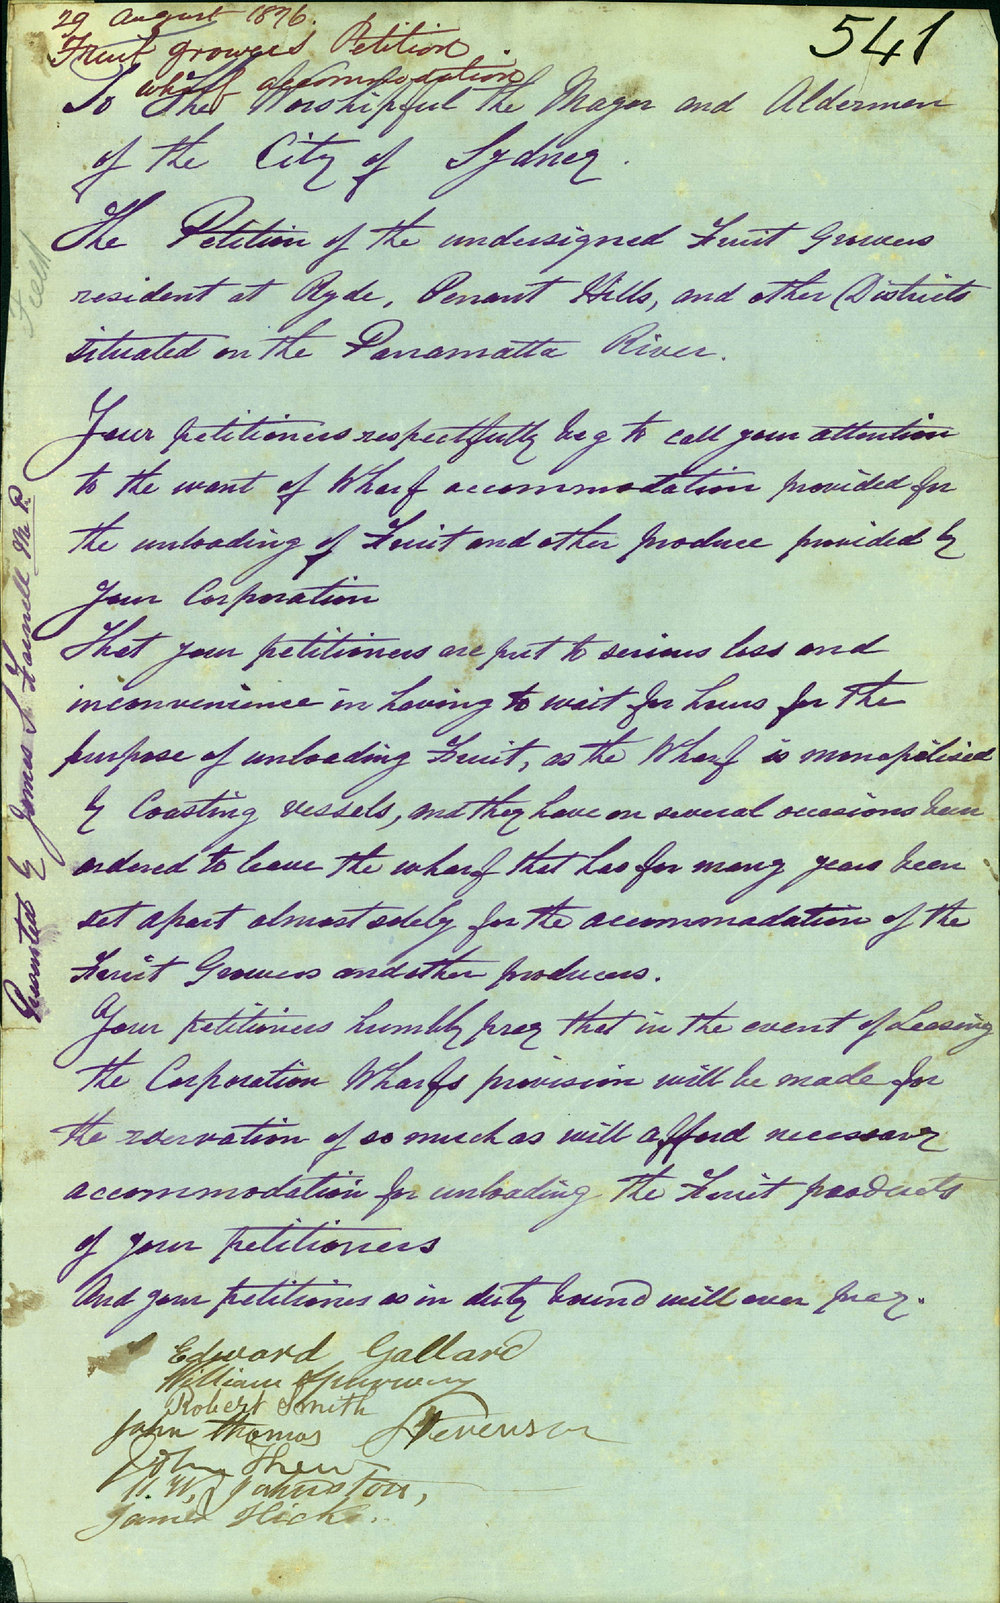 541
29 August 1876.
Fruit growers Petition
wharf accommodation.
To The Worshipful the Mayor and Aldermen
of the City of Sydney.
The Petition of the undersigned Fruit Growers
resident at Ryde, Penant Hills, and other Districts
situated on the Parramatta River.
Your petitioners respectfully beg to call your attention
to the want of Wharf accommodation provided for
the unloading of Fruit and other produce provided by
Your Corporation
That your petitioners are put to serious loss and
inconvenience in having to wait for hours for the
purpose of unloading Fruit, as the Wharf is monopolised
by Coasting vessels, and they have on several occasions been
ordered to leave the wharf that has for many years been
set apart almost solely for the accommodation of the
Fruit Growers and other producers.
Your petitioners humbly pray that in the event of Leasing
the Corporation Wharfs provision will be made for
the reservation of so much as will afford necessary
accommodation for unloading the Fruit products
of your petitioners
And your petitioners as in duty bound will ever pray.
Edward Gallard
William Spurway
Robert Smith
John Thomas Stevenson
John Shew
W. Johnston,
James Hicks.
Presented by James S. Farnell M.P.
Field